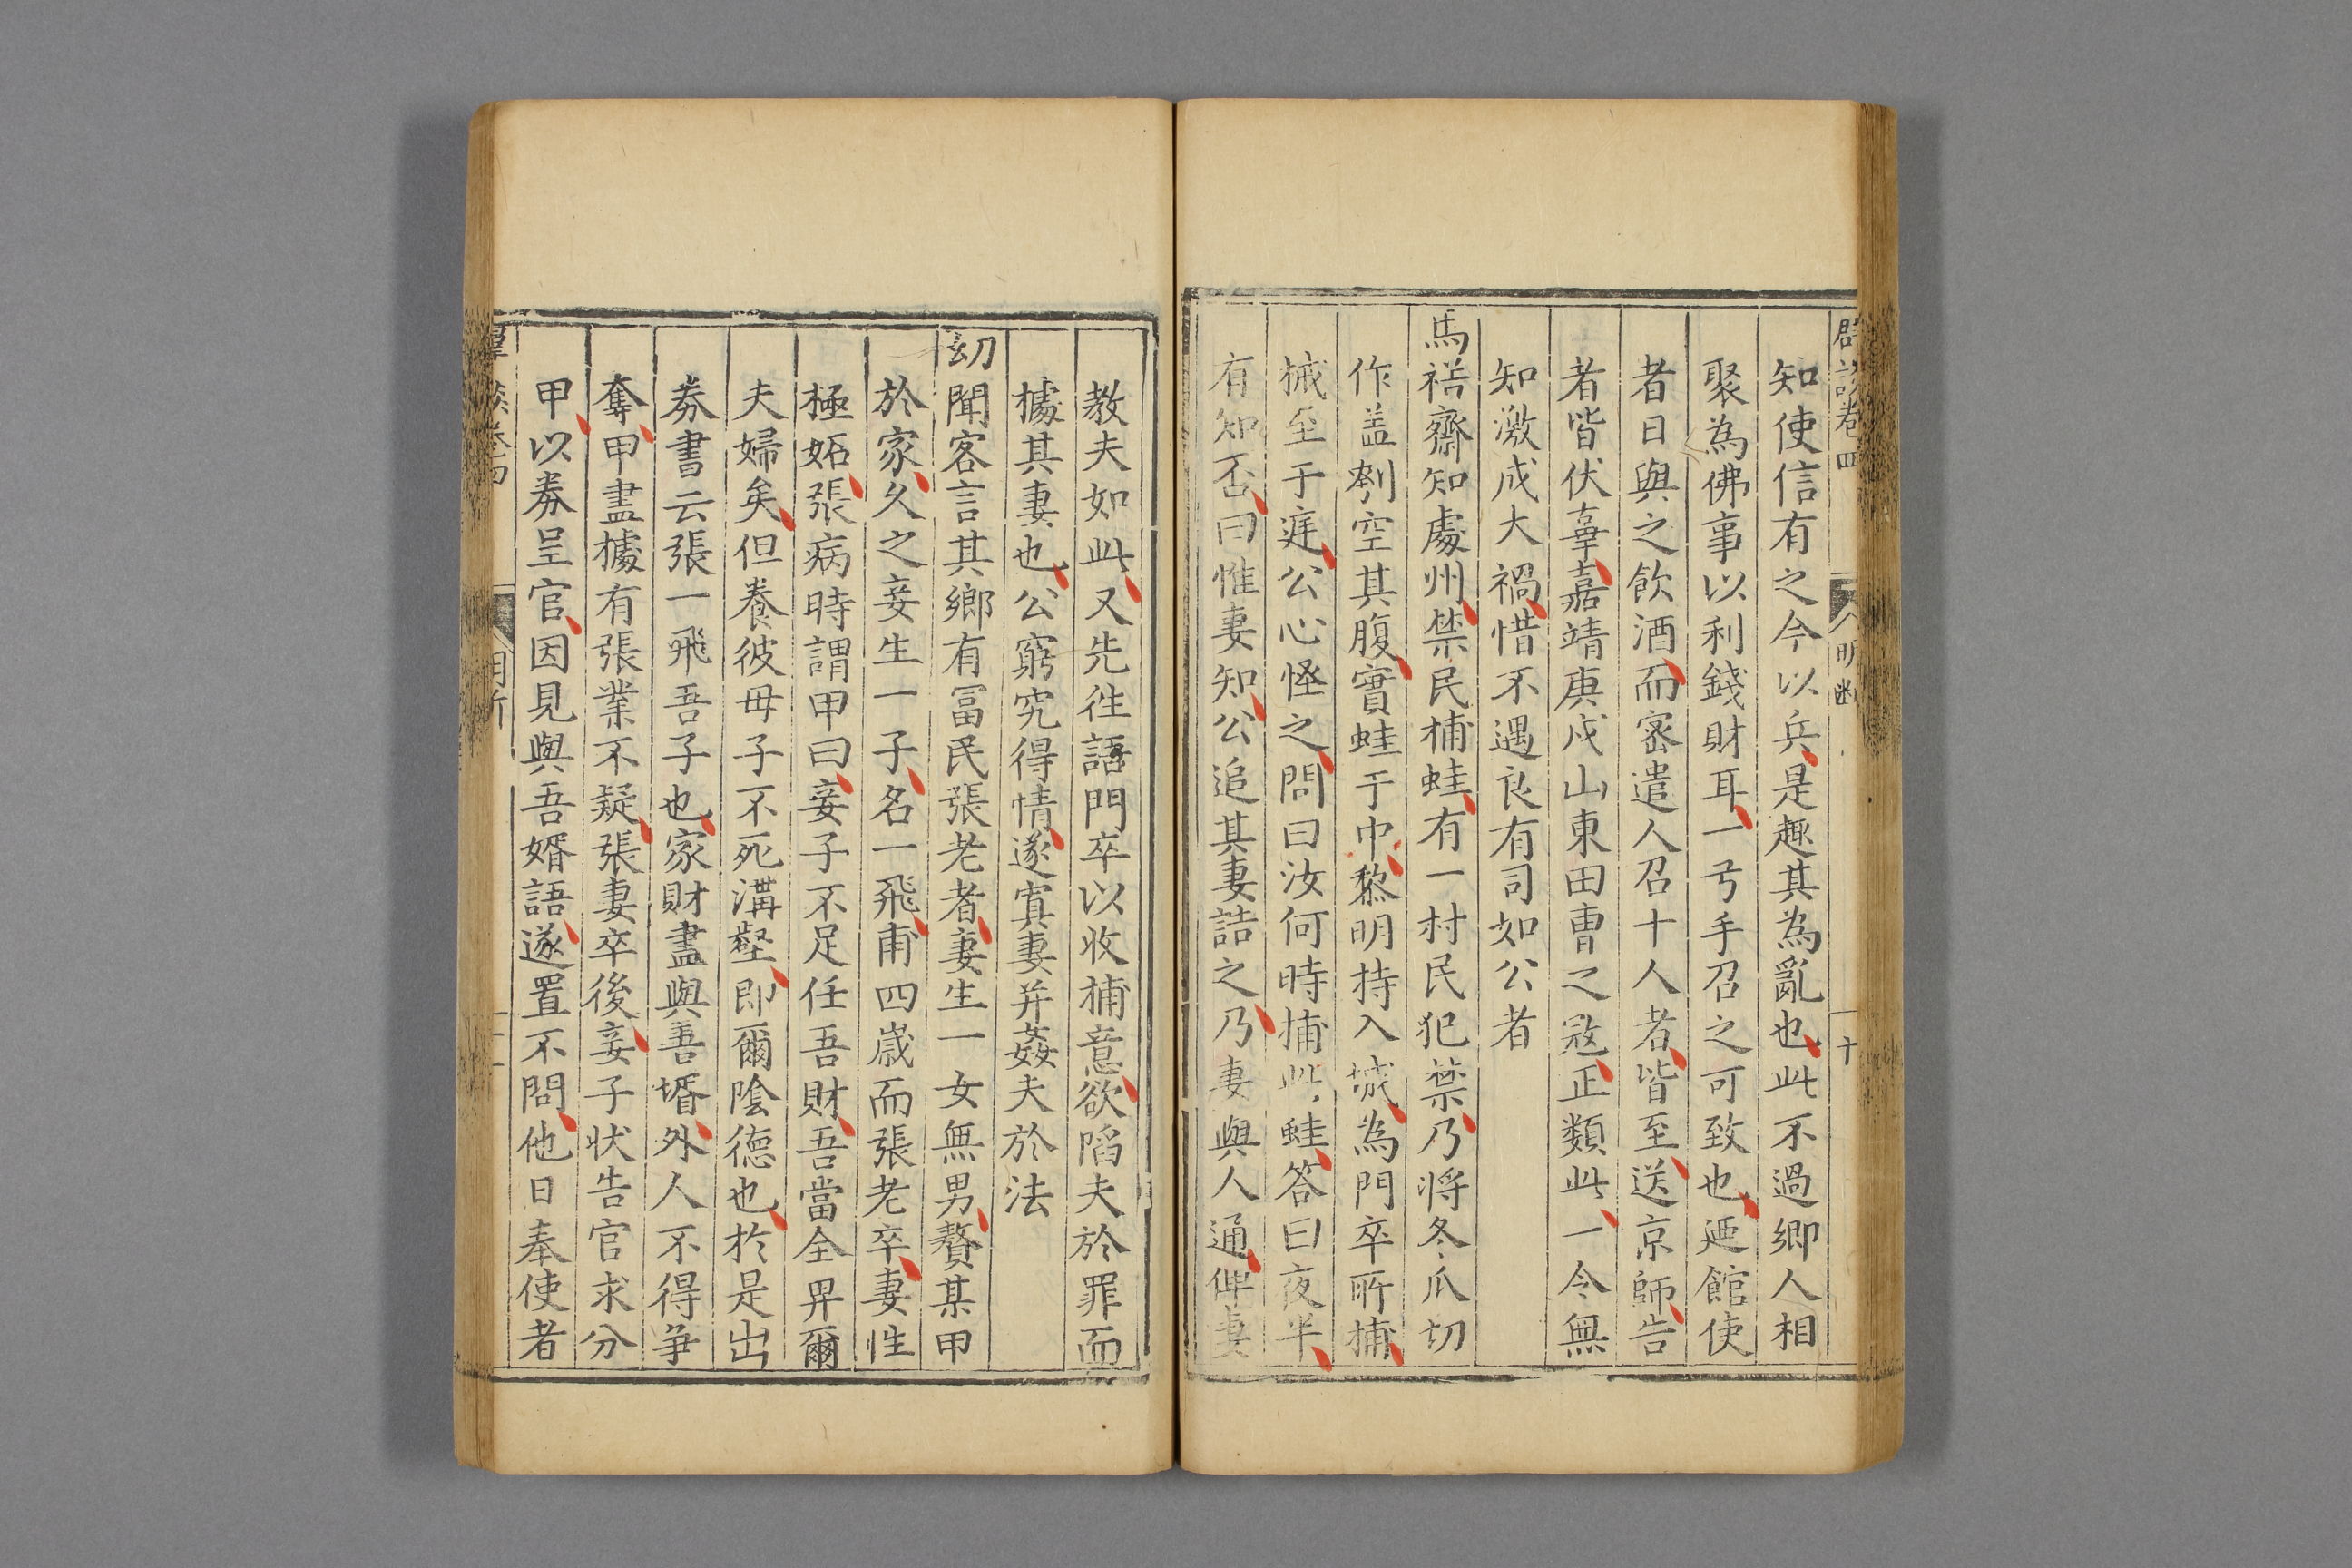 羣談卷四 明斷 十
知使信有之今以兵是趣其為亂也此不過鄉人相
聚為佛事以利錢財耳一弓手召之可致也廼館使
者日與之飲酒而密遣人召十人者皆至送京師告
者皆伏辜嘉靖庚戌山東田曹之冦正類此一令無
知激成大禍惜不遇良有司如公者
馬裕齋知處州禁民捕蛙有一村民犯禁乃將冬瓜切
作盖刳空其腹實蛙于中黎明持入城為門卒所捕
械至于庭公心怪之問曰汝何時捕此蛙答曰夜半
有知否曰惟妻知公追其妻詰之乃妻與人通俾妻
教夫如此又先徃語門卒以收捕意欲陷夫於罪而
據其妻也公窮究得情遂寘妻并姦夫於法
幼聞客言其鄉有冨民張老者妻生一女無男贅某甲
於家久之妾生一子名一飛甫四歲而張老卒妻性
極妬張病時謂甲曰妾子不足任吾財吾當全畀爾
夫婦矣但養彼母子不死溝壑即爾陰德也於是出
券書云張一飛吾子也家財盡與吾壻外人不得爭
奪甲盡據有張業不疑張妻卒後妾子狀告官求分
甲以券呈官因見與吾婿語遂置不問他日奉使者
羣談卷四 明斷 十一